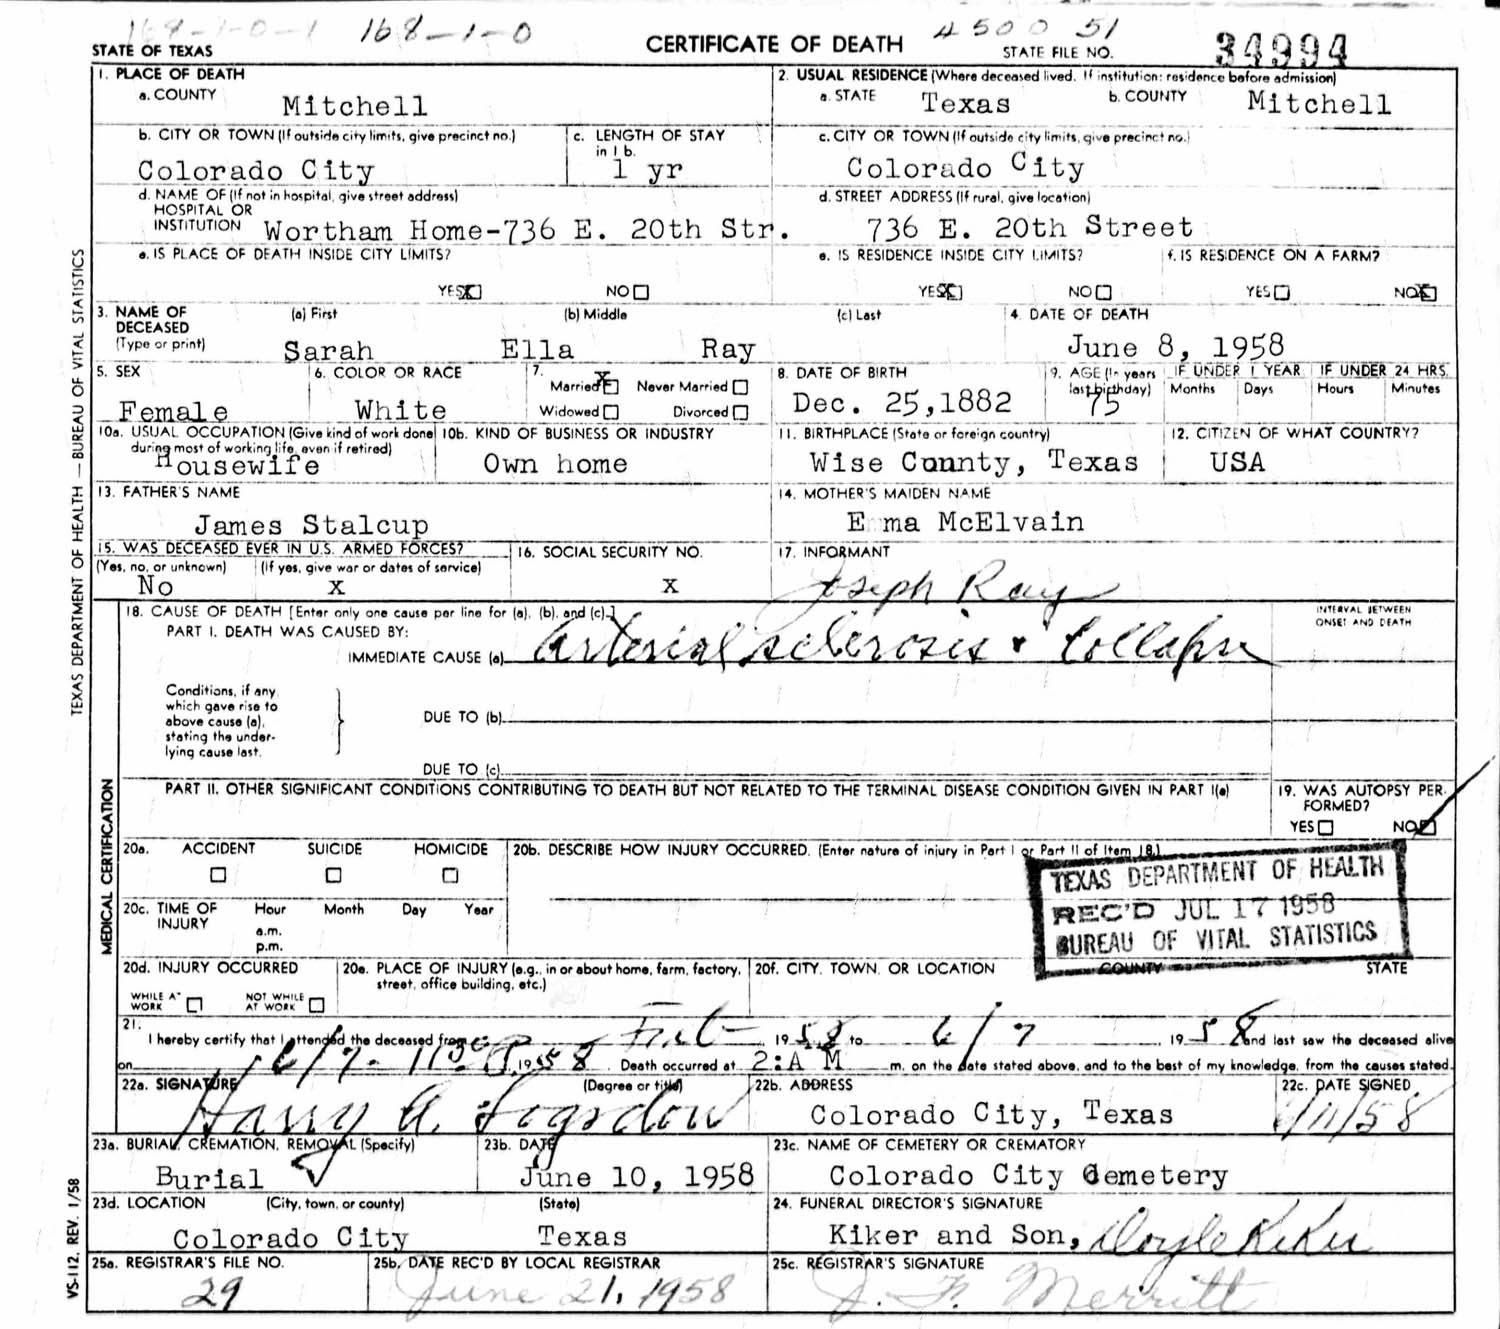 168-1-0-1 168-1-0 4500 51
STATE OF TEXAS CERTIFICATE OF DEATH STATE FILE NO. 34994
1. PLACE OF DEATH 2. USUAL RESIDENCE (Where deceased lived. If institution: residence before admission)
a. COUNTY Mitchell a. STATE Texas b. COUNTY Mitchell
b. CITY OR TOWN (If outside city limits, give precinct no.) c. LENGTH OF STAY in 1b. c. CITY OR TOWN (If outside city limits, give precinct no.)
Colorado City 1 yr Colorado City
d. NAME OF (If not in hospital, give street address) d. STREET ADDRESS (If rural, give location)
HOSPITAL OR
INSTITUTION Wortham Home-736 E. 20th Str. 736 E. 20th Street
e. IS PLACE OF DEATH INSIDE CITY LIMITS? e. IS RESIDENCE INSIDE CITY LIMITS? f. IS RESIDENCE ON A FARM?
YES X NO YES X NO YES NO X
3. NAME OF DECEASED (Type or print) (a) First (b) Middle (c) Last 4. DATE OF DEATH
Sarah Ella Ray June 8, 1958
5. SEX 6. COLOR OR RACE 7. Married X Never Married 8. DATE OF BIRTH 9. AGE (In years last birthday) IF UNDER 1 YEAR IF UNDER 24 HRS.
Months Days Hours Minutes
Female White Widowed Divorced Dec. 25,1882 75
10a. USUAL OCCUPATION (Give kind of work done during most of working life, even if retired) 10b. KIND OF BUSINESS OR INDUSTRY 11. BIRTHPLACE (State or foreign country) 12. CITIZEN OF WHAT COUNTRY?
Housewife Own home Wise County, Texas USA
13. FATHER'S NAME 14. MOTHER'S MAIDEN NAME
James Stalcup E ma McElvain
15. WAS DECEASED EVER IN U.S. ARMED FORCES? 16. SOCIAL SECURITY NO. 17. INFORMANT
(Yes, no, or unknown) (If yes, give war or dates of service)
No X X Joseph Ray
18. CAUSE OF DEATH [Enter only one cause per line for (a), (b), and (c).] INTERVAL BETWEEN ONSET AND DEATH
PART I. DEATH WAS CAUSED BY:
IMMEDIATE CAUSE (a) Arterial sclerosis & Collapse
Conditions, if any which gave rise to above cause (a), stating the underlying cause last.
DUE TO (b)
DUE TO (c)
PART II. OTHER SIGNIFICANT CONDITIONS CONTRIBUTING TO DEATH BUT NOT RELATED TO THE TERMINAL DISEASE CONDITION GIVEN IN PART I(a) 19. WAS AUTOPSY PERFORMED?
YES NO
20a. ACCIDENT SUICIDE HOMICIDE 20b. DESCRIBE HOW INJURY OCCURRED. (Enter nature of injury in Part I or Part II of Item 18.)
TEXAS DEPARTMENT OF HEALTH
REC'D JUL 17 1958
BUREAU OF VITAL STATISTICS
20c. TIME OF INJURY Hour Month Day Year
a.m.
p.m.
20d. INJURY OCCURRED 20e. PLACE OF INJURY (e.g., in or about home, farm, factory, street, office building, etc.) 20f. CITY, TOWN, OR LOCATION COUNTY STATE
WHILE AT WORK NOT WHILE AT WORK
21.
I hereby certify that I attended the deceased from 1958 to 6/7 1958 and last saw the deceased alive
on 6/7- 1958. Death occurred at 2:A M m. on the date stated above, and to the best of my knowledge, from the causes stated.
22a. SIGNATURE (Degree or title) 22b. ADDRESS 22c. DATE SIGNED
Harry A. Logsdon Colorado City, Texas 6/11/58
23a. BURIAL, CREMATION, REMOVAL (Specify) 23b. DATE 23c. NAME OF CEMETERY OR CREMATORY
Burial June 10, 1958 Colorado City Cemetery
23d. LOCATION (City, town, or county) (State) 24. FUNERAL DIRECTOR'S SIGNATURE
Colorado City Texas Kiker and Son, Doyle Kiker
25a. REGISTRAR'S FILE NO. 25b. DATE REC'D BY LOCAL REGISTRAR 25c. REGISTRAR'S SIGNATURE
29 June 21, 1958 J. F. Merritt
TEXAS DEPARTMENT OF HEALTH — BUREAU OF VITAL STATISTICS
MEDICAL CERTIFICATION
VS-112. REV. 1/58